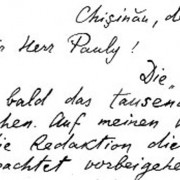 Chişinău, de
Herr Pauly!
Die „
bald das tausen
hen. Auf meinen
ie Redaktion die
achtet vorbeigehe